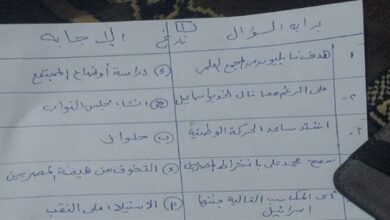 بداية السؤال تاريخ الإجابة
١ هدف نابليون من المجمع العلمى (ء) دراسة أوضاع المجتمع
٢- على الرغم مما نال الخديو اسماعيل انشاء مجلس النواب
٣- اشتد ساعد الحركة الوطنية (ب) حلوان
سمح محمد على بانخراط المصريين التخوف من هيمنة المصريين
أى المكاسب التالية حققتها اسرائيل (م) الاستيلاء على النقب